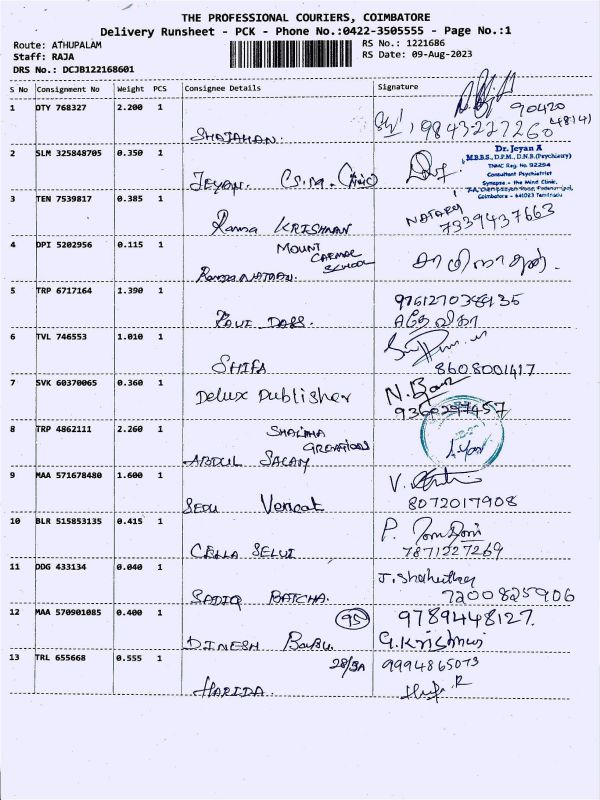 THE PROFESSIONAL COURIERS, COIMBATORE
Delivery Runsheet - PCK - Phone No.:0422-3505555 - Page No.:1
Route: ATHUPALAM
RS No.: 1221686
Staff: RAJA
RS Date: 09-Aug-2023
DRS No.: DCJB122168601
S No Consignment No Weight PCS Consignee Details Signature
1 OTY 768327 2.200 1
90420
48141
9843227260
SHAJAHAN.
2 SLM 325848705 0.350 1
Dr. Jeyan A
M.B.B.S., D.P.M., D.N.B.(Psychiatry)
TNMC Reg. No. 92294
Consultant Psychiatrist
Synapse - the Mind Clinic,
Coimbatore - 641023 Tamilnadu
JEYAN.
3 TEN 7539817 0.385 1
NATARAJ
7339437663
Rama KRISHNAN
4 DPI 5202956 0.115 1
MOUNT
CARMAL
SCHOOL
RAMANATHAN.
5 TRP 6717164 1.390 1
RAVI DASS.
6 TVL 746553 1.010 1
SHIFA
8608001417
7 SVK 60370065 0.360 1
Delux Publisher
8 TRP 4862111 2.260 1
ABDUL SALAM
9 MAA 571678480 1.600 1
V.
SEDU Vencat
8072017908
10 BLR 515853135 0.415 1
P.
CELLA SELVI
7871227269
11 DDG 433134 0.040 1
SADIQ BATCHA.
7200825906
12 MAA 570901085 0.400 1
95
9789448127.
DINESH Babu.
G.Krishnan
13 TRL 655668 0.555 1
28/3A
9994865073
HARIDA.